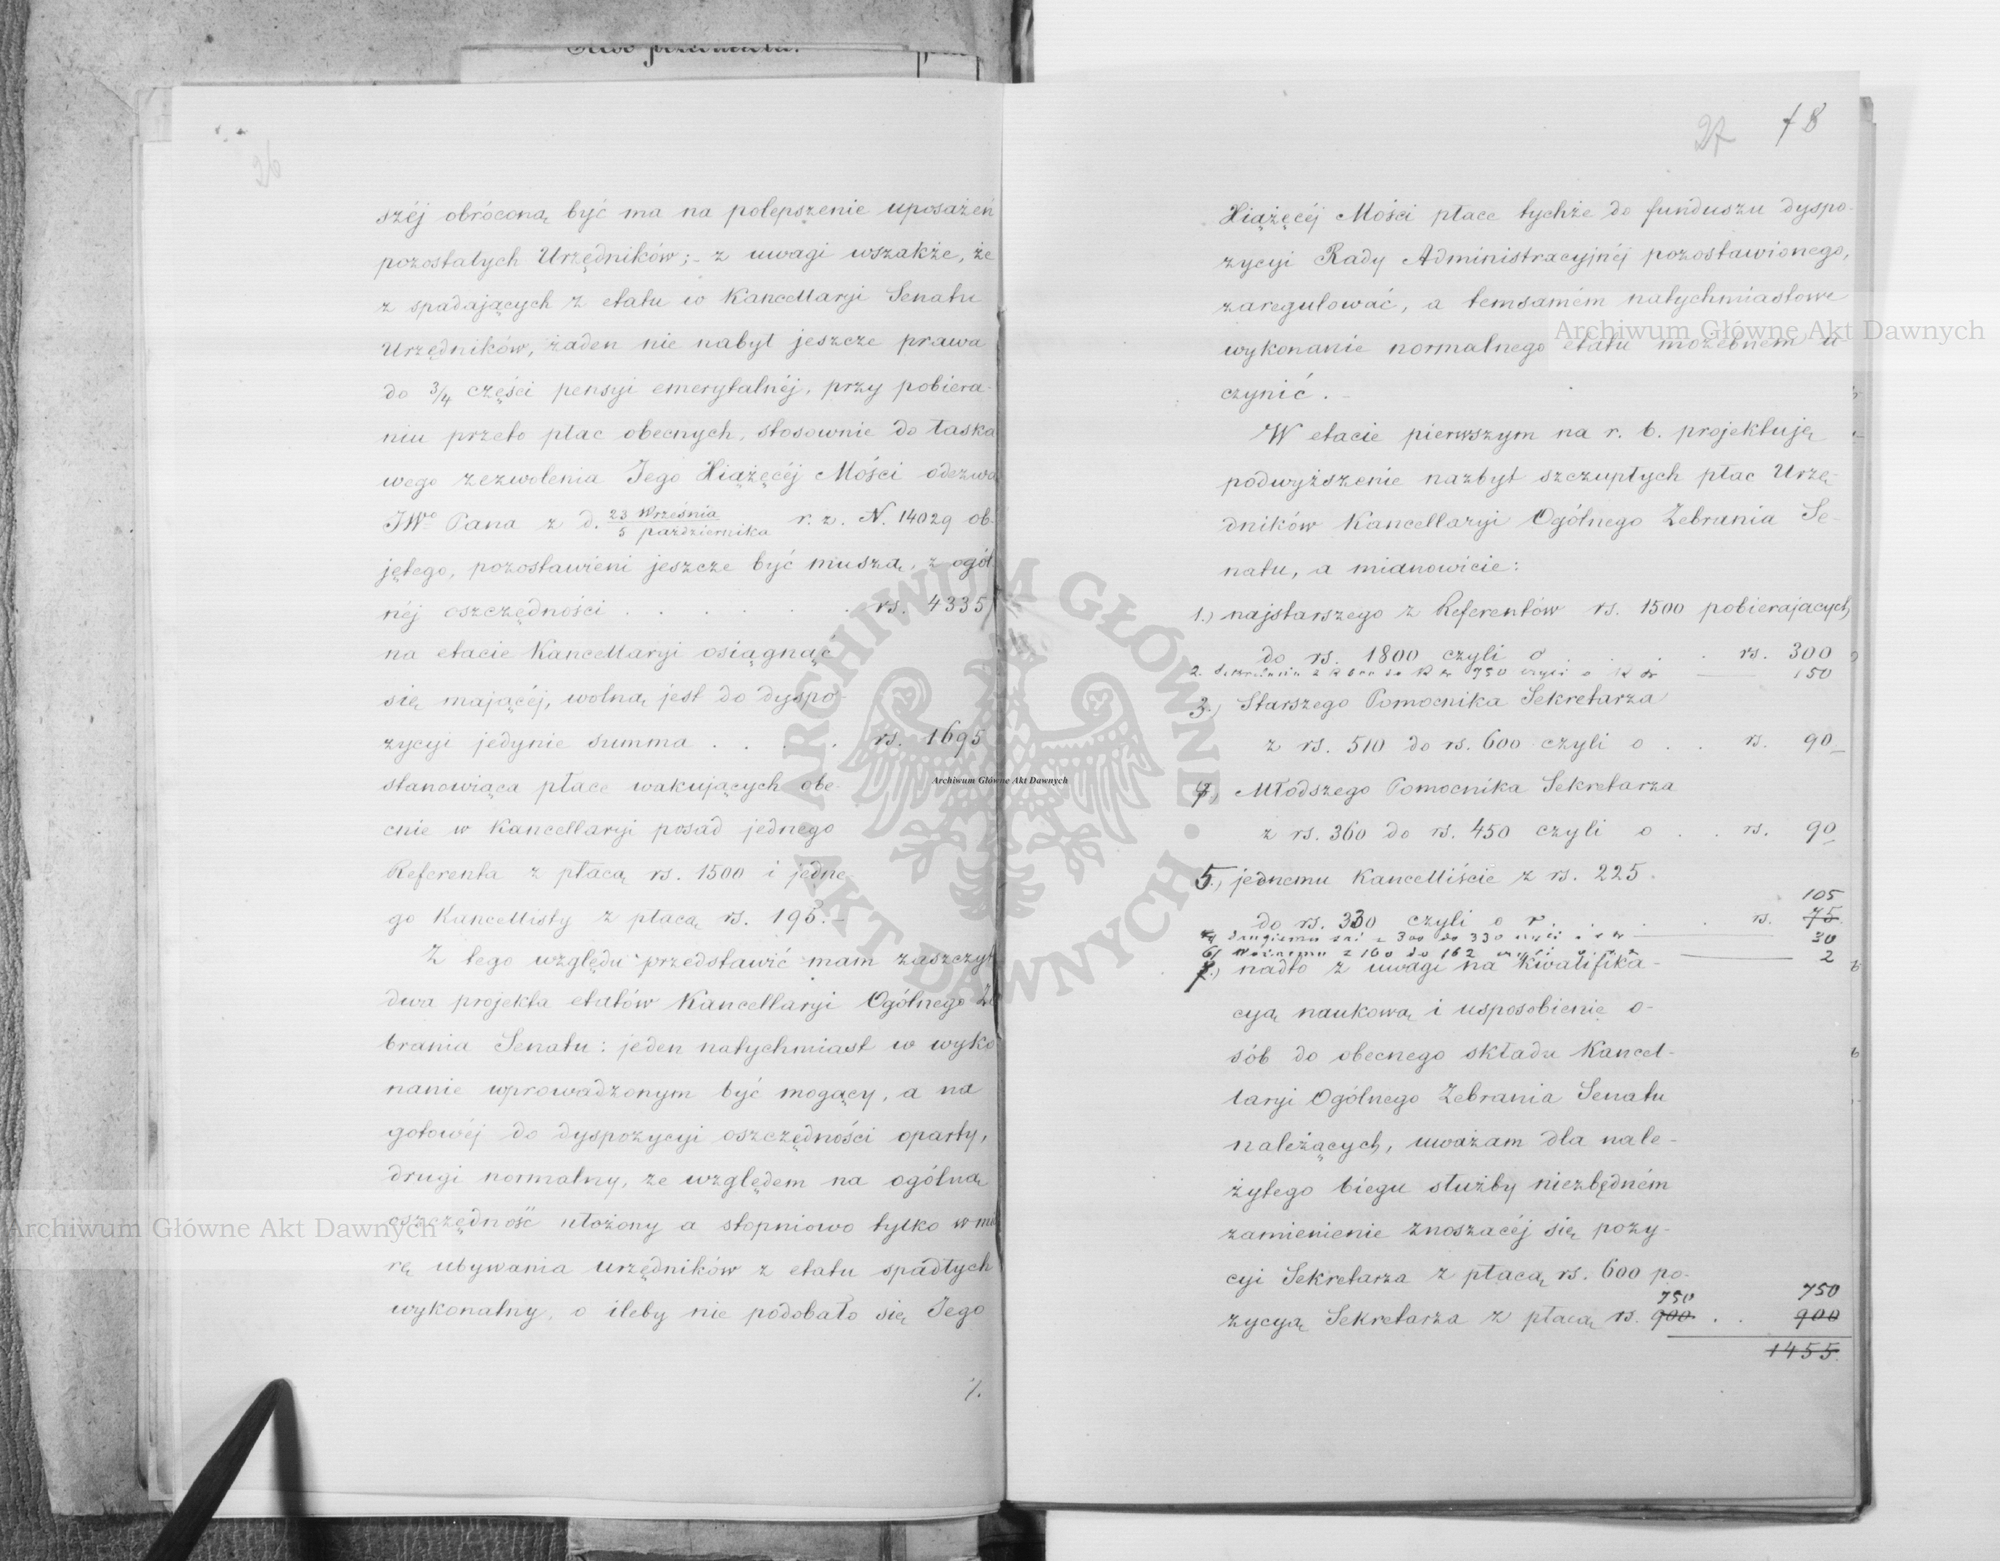 26
széj obróconą być ma na polepszenie uposażeń
pozostałych Urzędników; z uwagi wszakże, że
z spadających z etatu w Kancellaryi Senatu
Urzędników, żaden nie nabył jeszcze prawa
do 3/4 części pensyi emerytalnéj, przy pobiera-
niu przeto płac obecnych, stosownie do łaska
wego zezwolenia Jego Xiążęcéj Mości odezwą
JWo Pana z d. 23 Września / 5 października r. z. N. 14029 ob-
jętego, pozostawieni jeszcze być muszą, z ogól
néj oszczędności . . . . . . rs. 4335
na etacie Kancellaryi osiągnąć
się mającéj, wolną jest do dyspo-
zycyi jedynie summa . . . . rs. 1695
stanowiąca płace wakujących obe-
cnie w Kancellaryi posad jednego
Referenta z płacą rs. 1500 i jedne-
go Kancellisty z płacą rs. 195.-
Z tego względu przedstawić mam zaszczyt
dwa projekta etatów Kancellaryi Ogólnego Ze
brania Senatu: jeden natychmiast w wyko
nanie wprowadzonym być mogący, a na
gotowéj do dyspozycyi oszczędności oparty,
drugi normalny, ze względem na ogólną
oszczędność ułożony a stopniowo tylko w mia
rę ubywania urzędników z etatu spadłych
wykonalny, o ileby nie podobało się Jego
%.
27 18
Xiążęcéj Mości płace tychże do funduszu dyspo-
zycyi Rady Administracyjnéj pozostawionego,
zaregulować, a temsamém natychmiastowe
wykonanie normalnego etatu możebném u
czynić.-
W etacie pierwszym na r. b. projektuję
podwyższenie nazbyt szczupłych płac Urzę-
dników Kancellaryi Ogólnego Zebrania Se-
natu, a mianowicie:
1.) najstarszego z Referentów rs. 1500 pobierających
do rs. 1800 czyli o . . . . rs. 300
2. Sekretarza z R 600 do R sr 750 czyli o R sr 150
3.) Starszego Pomocnika Sekretarza
z rs. 510 do rs. 600 czyli o . . rs. 90
4.) Młodszego Pomocnika Sekretarza
z rs. 360 do rs. 450 czyli o . . rs. 90
5.) jednemu Kancelliście z rs. 225.
105
do rs. 330 czyli o r. . . . . rs. 75.
drugiemu z 300 do 330 czyli o 30
6) Woźnemu z 160 do 162 2
7.) nadto z uwagi na kwalifika-
cyą naukową i usposobienie o-
sób do obecnego składu Kancel-
laryi Ogólnego Zebrania Senatu
należących, uważam dla nale-
żytego biegu służby niezbędném
zamienienie znoszącéj się pozy-
cyi Sekretarza z płacą rs. 600 po-
750 750
zycyą Sekretarza z płacą rs. 900 . . 900
1455
Archiwum Główne Akt Dawnych
Archiwum Główne Akt Dawnych
Archiwum Główne Akt Dawnych
ARCHIWUM GŁÓWNE · AKT DAWNYCH ·